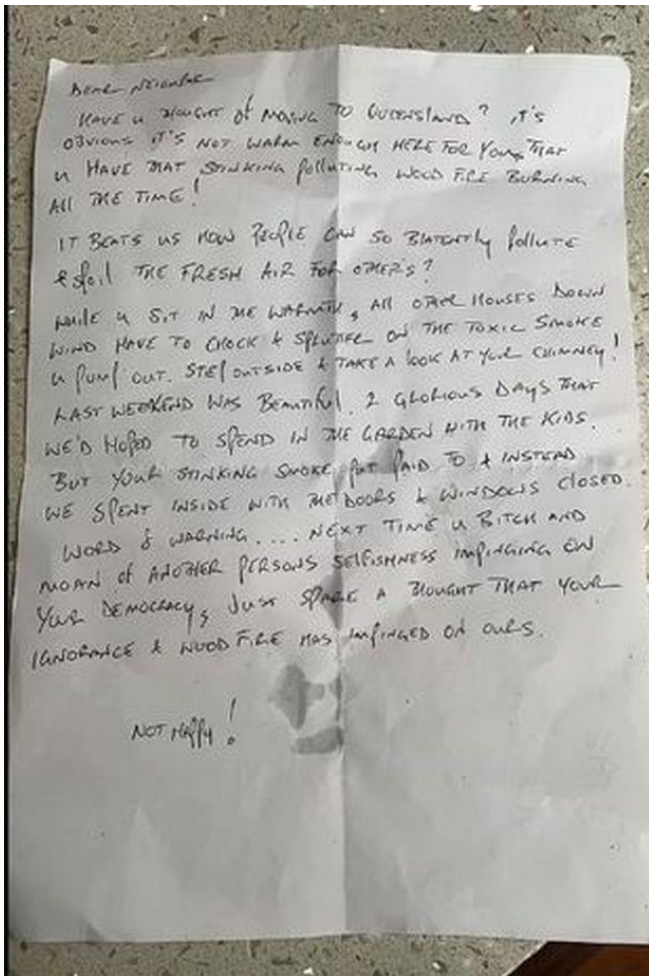 DEAR NEIGHBOR
HAVE U THOUGHT OF MOVING TO QUEENSLAND? IT'S
OBVIOUS IT'S NOT WARM ENOUGH HERE FOR YOU, THAT
U HAVE THAT STINKING POLLUTING WOOD FIRE BURNING
ALL THE TIME!
IT BEATS US HOW PEOPLE CAN SO BLATENTLY POLLUTE
& SPOIL THE FRESH AIR FOR OTHER'S?
WHILE U SIT IN THE WARMTH, ALL OTHER HOUSES DOWN
WIND HAVE TO CHOCK & SPLUTTER ON THE TOXIC SMOKE
U PUMP OUT. STEP OUTSIDE & TAKE A LOOK AT YOUR CHIMNEY!
LAST WEEKEND WAS BEAUTIFUL. 2 GLORIOUS DAYS THAT
WE'D HOPED TO SPEND IN THE GARDEN WITH THE KIDS.
BUT YOUR STINKING SMOKE PUT PAID TO & INSTEAD
WE SPENT INSIDE WITH THE DOORS & WINDOWS CLOSED.
WORD OF WARNING.... NEXT TIME U BITCH AND
MOAN OF ANOTHER PERSONS SELFISHNESS IMPINGING ON
YOUR DEMOCRACY, JUST SPARE A THOUGHT THAT YOUR
IGNORANCE & WOOD FIRE HAS IMPINGED ON OURS.
NOT HAPPY!